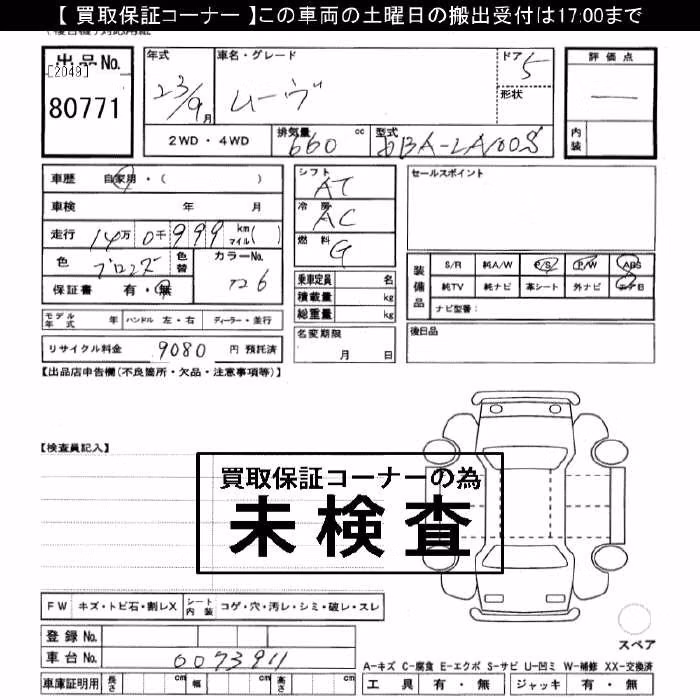 【 買取保証コーナー 】この車両の土曜日の搬出受付は17:00まで
出品No.
[2049]
80771
年式
23/9月
車名・グレード
ムーヴ
ドア 5
形状
評価点
―
内装
2WD・4WD
排気量 660 cc
型式 DBA-LA100S
車歴 自家用・( )
車検 年 月
走行 14万 0千 999 km マイル( )
色 ブロンズ
色替
カラーNo. T26
保証書 有・無
シフト AT
冷房 AC
燃料 G
乗車定員 名
積載量 kg
総重量 kg
セールスポイント
装備品
S/R 純A/W P/S P/W ABS
純TV 純ナビ 革シート 外ナビ エアB
ナビ型番:
モデル年式 年 ハンドル 左・右 ディーラー・並行
リサイクル料金 9080 円 預託済
名変期限 月 日
後日品
【出品店申告欄(不良箇所・欠品・注意事項等)】
【検査員記入】
買取保証コーナーの為
未検査
FW キズ・トビ石・割レX シート内装 コゲ・穴・汚レ・シミ・破レ・スレ
登録No.
車台No. 0073911
車庫証明用 長さ cm 幅 cm 高さ cm
スペア
A-キズ C-腐食 E-エクボ S-サビ U-凹ミ W-補修 XX-交換済
工具 有・無 ジャッキ 有・無